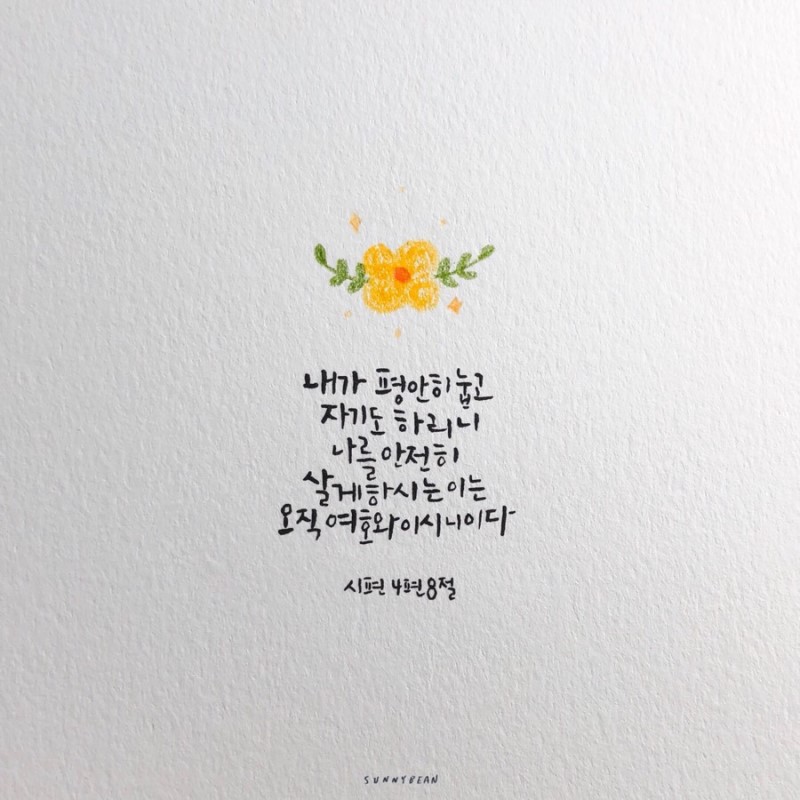 내가 평안히 눕고
자기도 하리니
나를 안전히
살게 하시는 이는
오직 여호와이시니이다
시편 4편 8절
SUNNYBEAN